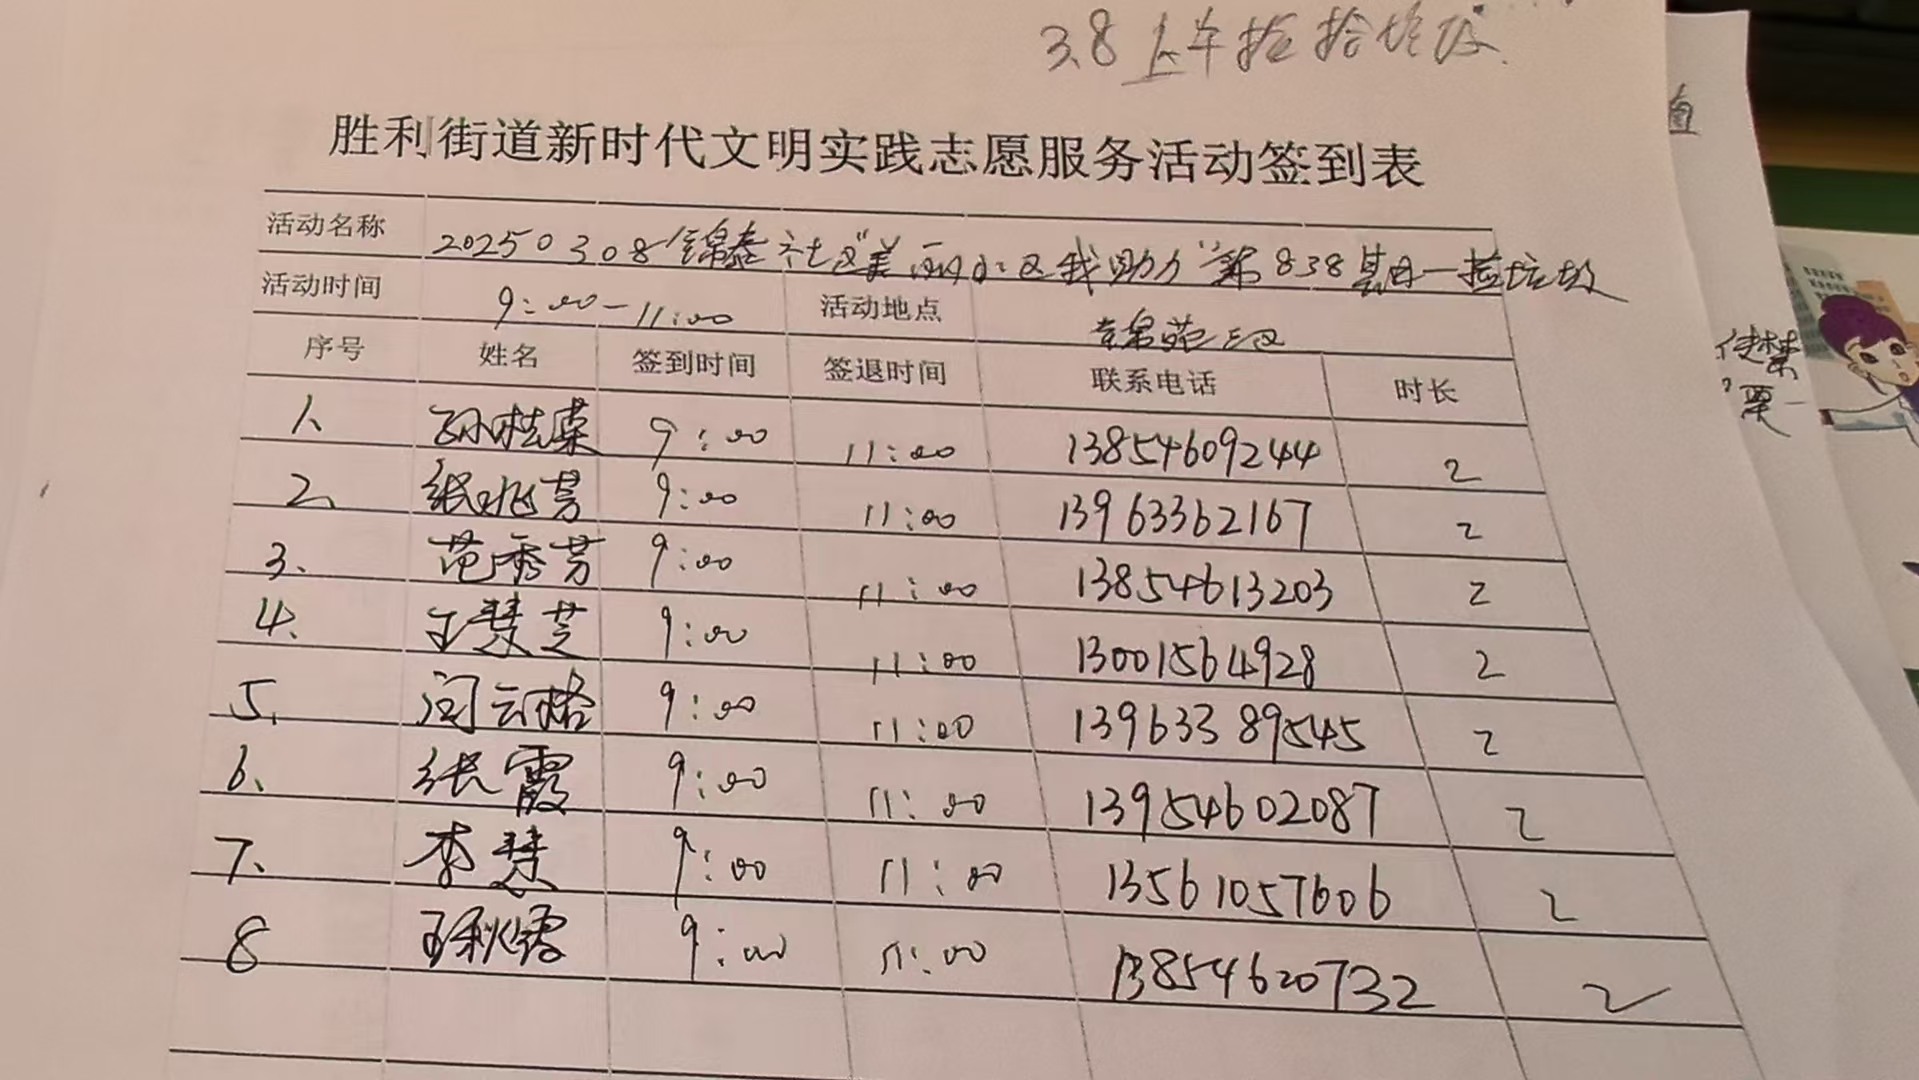 3.8上午捡拾垃圾
胜利街道新时代文明实践志愿服务活动签到表
活动名称 20250308锦泰社区"美丽小区我助力"第838期一捡垃圾
活动时间 9:00-11:00 活动地点 锦苑三区
序号 姓名 签到时间 签退时间 联系电话 时长
1、 孙桂荣 9:00 11:00 13854609244 2
2、 张兆芳 9:00 11:00 13963362167 2
3、 范秀芳 9:00 11:00 13854613203 2
4、 王慧芝 9:00 11:00 13001564928 2
5、 闫云格 9:00 11:00 13963389545 2
6、 张霞 9:00 11:00 13954602087 2
7、 李慧 9:00 11:00 13561057606 2
8 王秋霞 9:00 11:00 13854620732 2